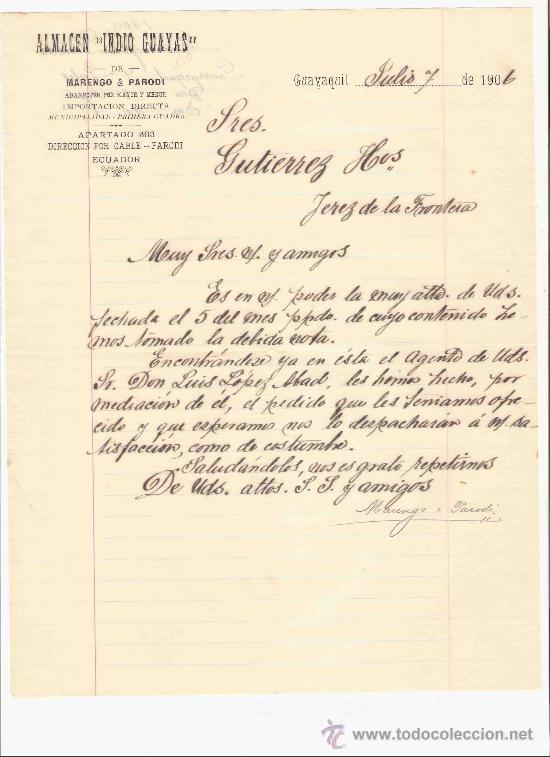 ALMACEN "INDIO GUAYAS"
DE
MARENGO & PARODI
ABARROTES POR MAYOR Y MENOR
IMPORTACION DIRECTA
MUNICIPALIDAD - PRIMERA CUADRA
APARTADO 303
DIRECCION POR CABLE -- PARODI
ECUADOR
Guayaquil Julio 7 de 1906
Sres.
Gutierrez Hos.
Jerez de la Frontera
Muy Sres. n/. y amigos
Es en n/. poder la muy atta. de Uds.
fechada el 5 del mes ppdo. de cuyo contenido he-
mos tomado la debida nota.
Encontrándose ya en ésta el Agente de Uds.
Sr. Don Luis López Abad, les hemos hecho, por
mediación de él, el pedido que les teniamos ofre-
cido y que esperamos nos lo despacharán á n/. sa-
tisfacción, como de costumbre.
Saludándolos, nos es grato repetirnos
De Uds. attos. S. S. y amigos
Marengo & Parodi
todocoleccion
http://www.todocoleccion.net